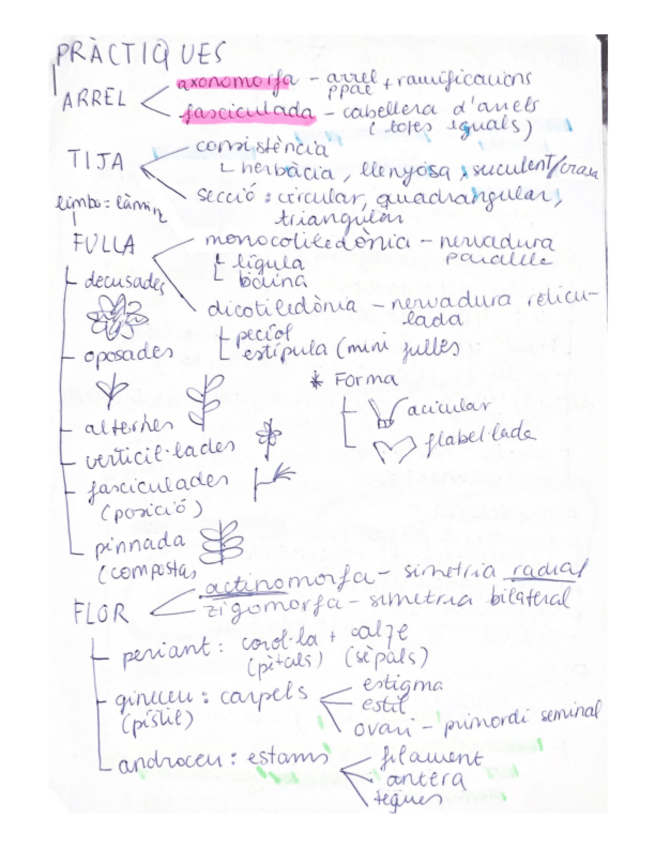 PRÀCTIQUES
ARREL
axonomorfa - arrel ppal + ramificacions
fasciculada - cabellera d'arrels
(totes iguals)
TIJA
consistència
herbàcia, llenyosa, suculent/crasa
secció: circular, quadrangular,
triangular
limbo: làmina
FULLA
monocotiledònia - nervadura
paral·lela
lígula
beina
dicotiledònia - nervadura reticu-
lada
pecíol
estípula (mini fulles)
decusades
oposades
alternes
verticil·lades
fasciculades
(posició)
pinnada
(compostas
* Forma
acicular
flabel·lada
FLOR
actinomorfa - simetria radial
zigomorfa - simetria bilateral
periant: corol·la + calze
(pètals) (sèpals)
gineceu: carpels
(pistil)
estigma
estil
ovari - primordi seminal
androceu: estams
filament
antera
teques